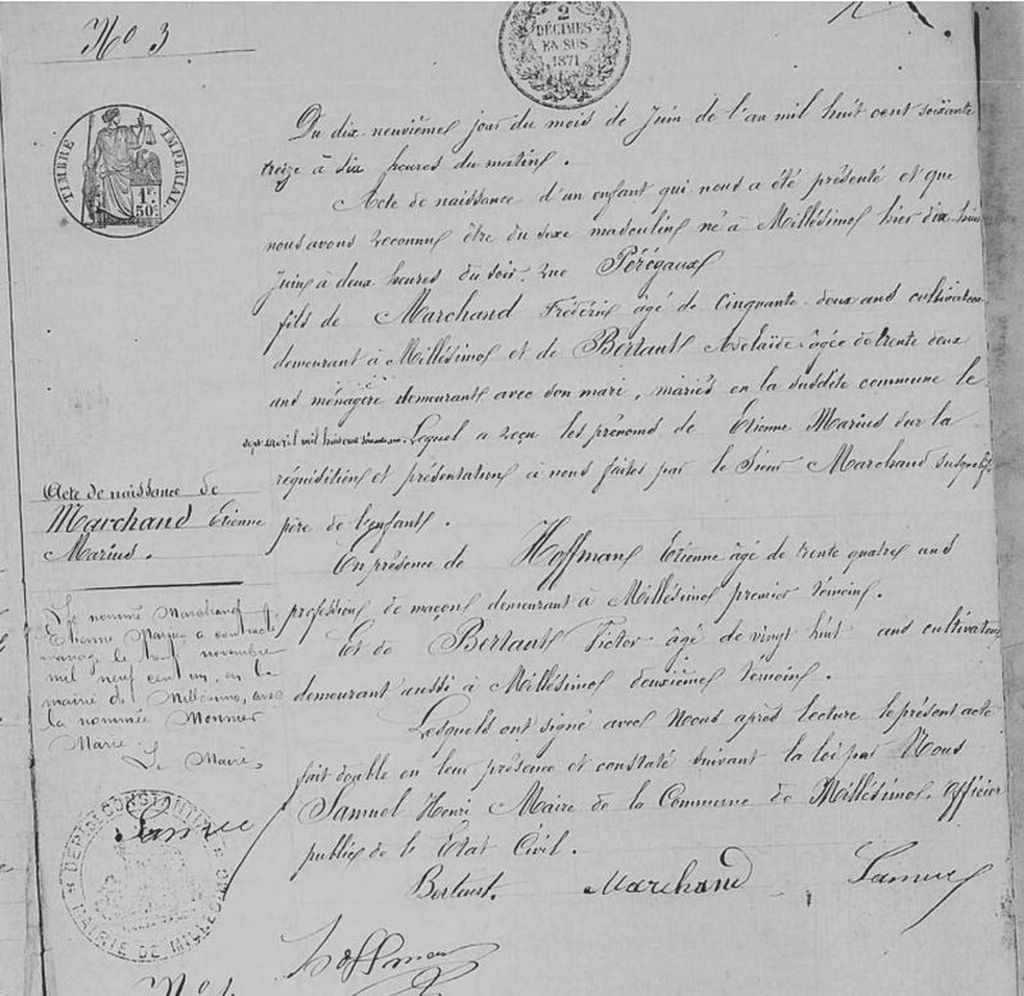 No 3
2
DÉCIMES
EN SUS
1871
TIMBRE IMPERIAL
1F.
50c.
Du dix neuvième jour du mois de Juin de l'an mil huit cent soixante
treize à six heures du matin.
Acte de naissance d'un enfant qui nous a été présenté et que
nous avons reconnu être du sexe masculin né à Millésimo hier dix huit
Juin à deux heures du soir, rue Pérégaux
fils de Marchand Frédéric âgé de Cinquante deux ans cultivateur
demeurant à Millésimo et de Bertault Adelaïde âgée de trente deux
ans ménagère demeurant avec son mari, mariés en la susdite commune le
sept avril mil huit cent Lequel a reçu les prénoms de Etienne Marius sur la
réquisition et présentation à nous faites par le Sieur Marchand susqualifié
père de l'enfant.
Acte de naissance de
Marchand Etienne
Marius.
En présence de Hoffman Etienne âgé de trente quatre ans
profession de maçon demeurant à Millésimo premier témoin.
Et de Bertault Victor âgé de vingt huit ans cultivateur
demeurant aussi à Millésimo deuxième témoin.
Lesquels ont signé avec Nous après lecture le présent acte
fait double en leur présence et constaté suivant la loi par Nous
Samuel Henri Maire de la Commune de Millésimo. Officier
public de l'Etat Civil.
Le nommé Marchand
Etienne Marius a contracté
mariage le neuf novembre
mil neuf cent un, en la
mairie de Millésimo, avec
la nommée Monnier
Marie.
Le Maire,
Samuel
DEPT DE CONSTANTINE
MAIRIE DE MILLESIMO
Bertault. Marchand Samuel
Hoffman
No 4